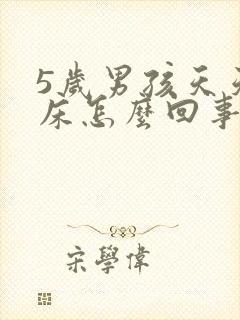 5歲男孩天天
床怎麼回事
宋學偉